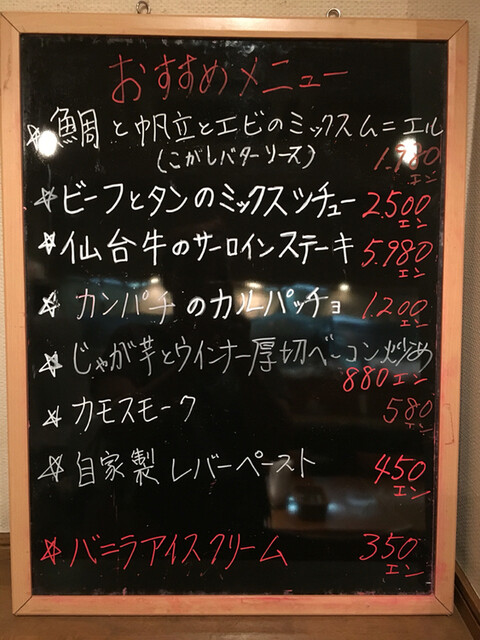 おすすめメニュー
☆鯛と帆立とエビのミックスムニエル
(こがしバターソース) 1.980エン
☆ビーフとタンのミックスシチュー 2.500エン
☆仙台牛のサーロインステーキ 5.980エン
☆カンパチのカルパッチョ 1.200エン
☆じゃが芋とウインナー厚切ベーコン炒め
880エン
☆カモスモーク 580エン
☆自家製レバーペースト 450エン
☆バニラアイスクリーム 350エン